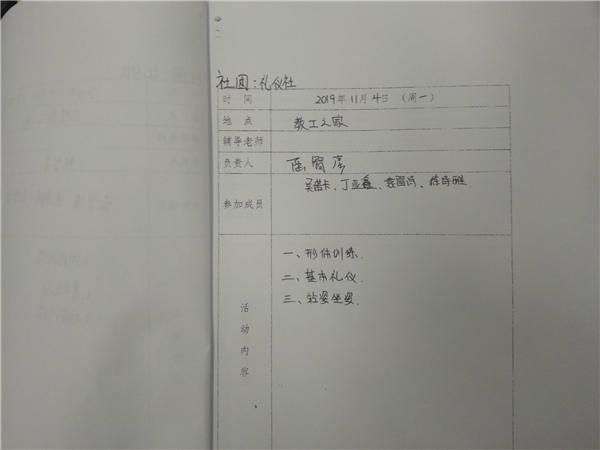 社团:礼仪社
时 间 2019年11月4日 (周一)
地 点 教工之家
辅导老师
负责人
参加成员 吴诺卡、丁亚鑫、
一、形体训练
二、基本礼仪
三、站姿坐姿
活
动
内
容